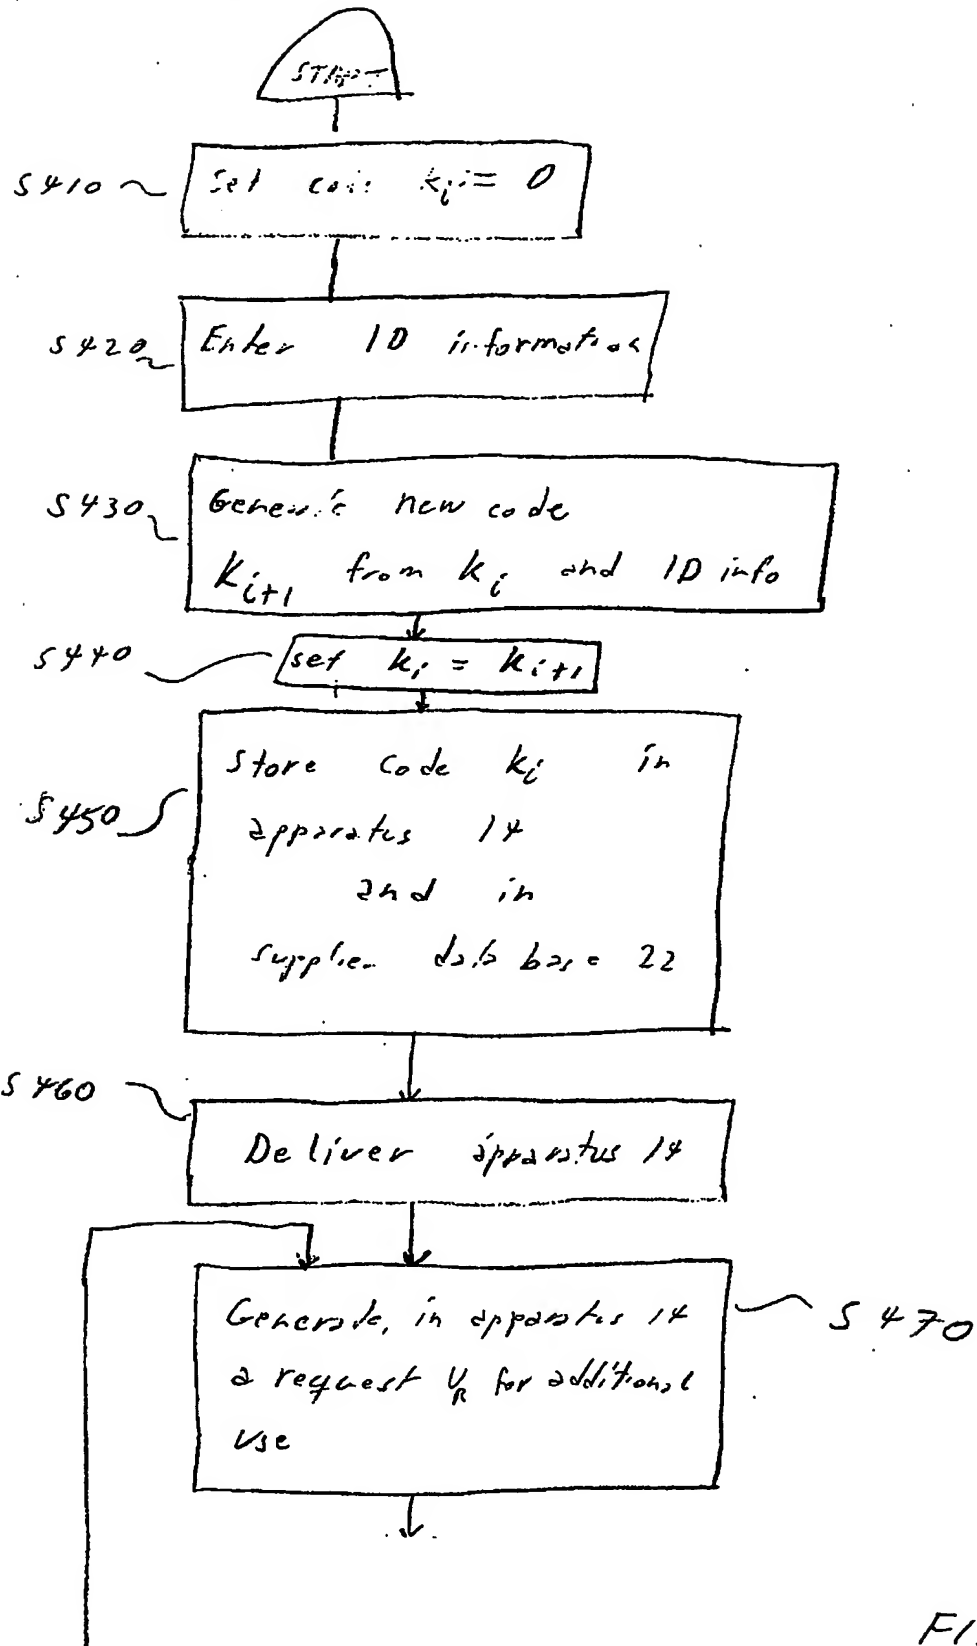 START
S410
Set code ki := 0
S420
Enter ID information
S430
Generate new code
Ki+1 from ki and ID info
S440
set ki = Ki+1
S450
Store code ki in
apparatus 14
and in
supplier data base 22
S460
Deliver apparatus 14
S470
Generate, in apparatus 14
a request UR for additional
use